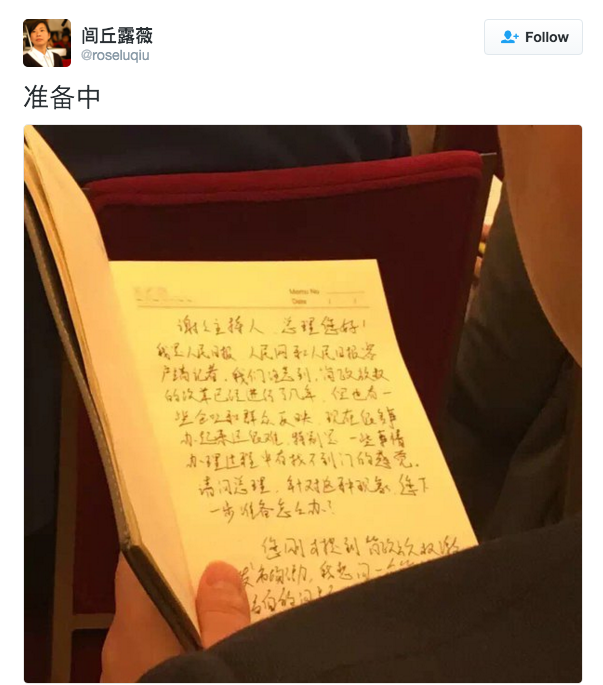 闾丘露薇
@roseluqiu
Follow
准备中
Memo No.
Date / /
谢谢主持人、总理您好!
我是人民日报 人民网和人民日报客
户端记者。我们注意到,简政放权
的改革已经进行了几年,但也有一
些企业和群众反映,现在很多事
办起来还很难,特别是一些事情
办理过程中有找不到门的感觉。
请问总理,针对这种现象,您下
一步准备怎么办?
您刚才提到简政放权
我想问一个
的问